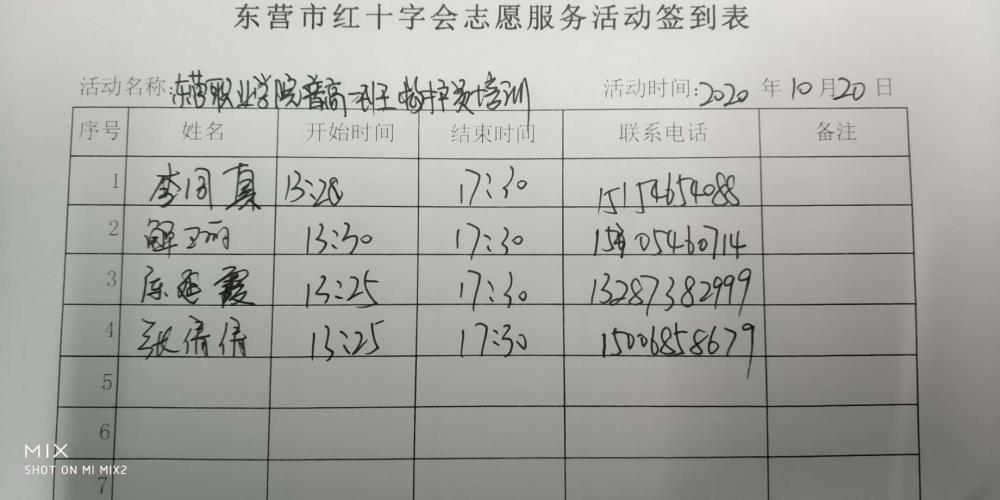 东营市红十字会志愿服务活动签到表
活动名称:东营职业学院普高 救护员培训 活动时间:2020 年10月20日
序号 姓名 开始时间 结束时间 联系电话 备注
1 李同真 13:28 17:30 15154654088
2 解卫丽 13:30 17:30 15805460714
3 陈延霞 13:25 17:30 13287382999
4 张倩倩 13:25 17:30 15006858679
5
6
7
MIX
SHOT ON MI MIX2